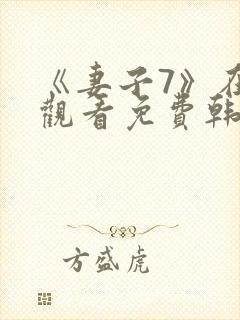 《妻子7》在
觀看免費韩
方盛虎